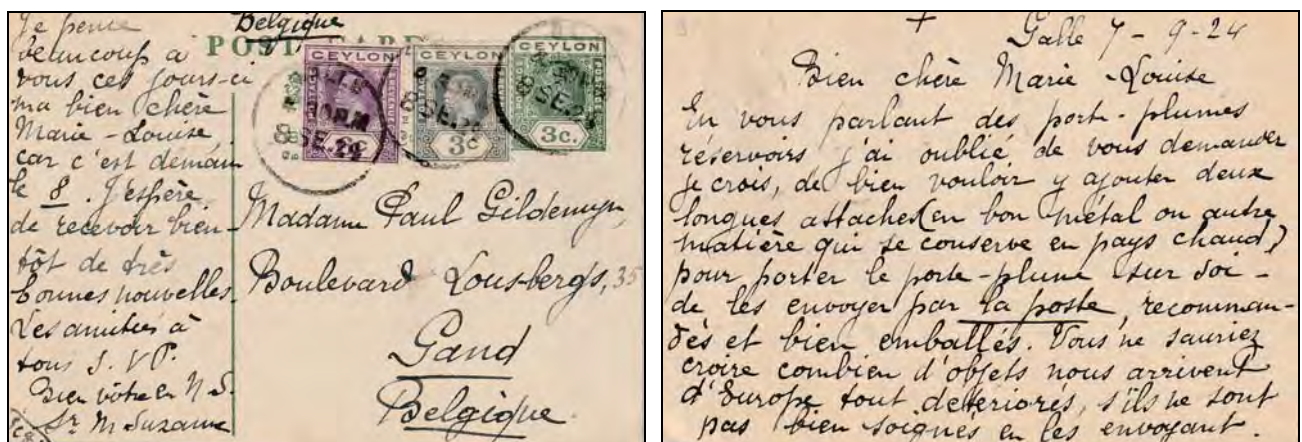 Je pense
beaucoup à
vous ces jours-ci
ma bien chère
Marie-Louise
car c'est demain
le 8. J'espère
de recevoir bien-
tôt de très
bonnes nouvelles
Les amitiés à
tous S.V.P.
Bien vôtre en N.S.
Sr M Suzanne
Belgique
POST CARD
CEYLON CEYLON CEYLON
POSTAGE
3c 3c.
SE.24
Madame Paul Gildemyn
Boulevard Lousbergs, 35
Gand
Belgique.
Galle 7-9-24
Bien chère Marie-Louise
En vous parlant des porte-plumes
réservoirs j'ai oublié, de vous demander
je crois, de bien vouloir y ajouter deux
longues attaches (en bon métal ou autre
matière qui se conserve en pays chaud)
pour porter le porte-plume sur soi -
de les envoyer par la poste, recomman-
dés et bien emballés. Vous ne sauriez
croire combien d'objets nous arrivent
d'Europe tout deteriores, s'ils ne sont
pas bien soignés en les envoyant.